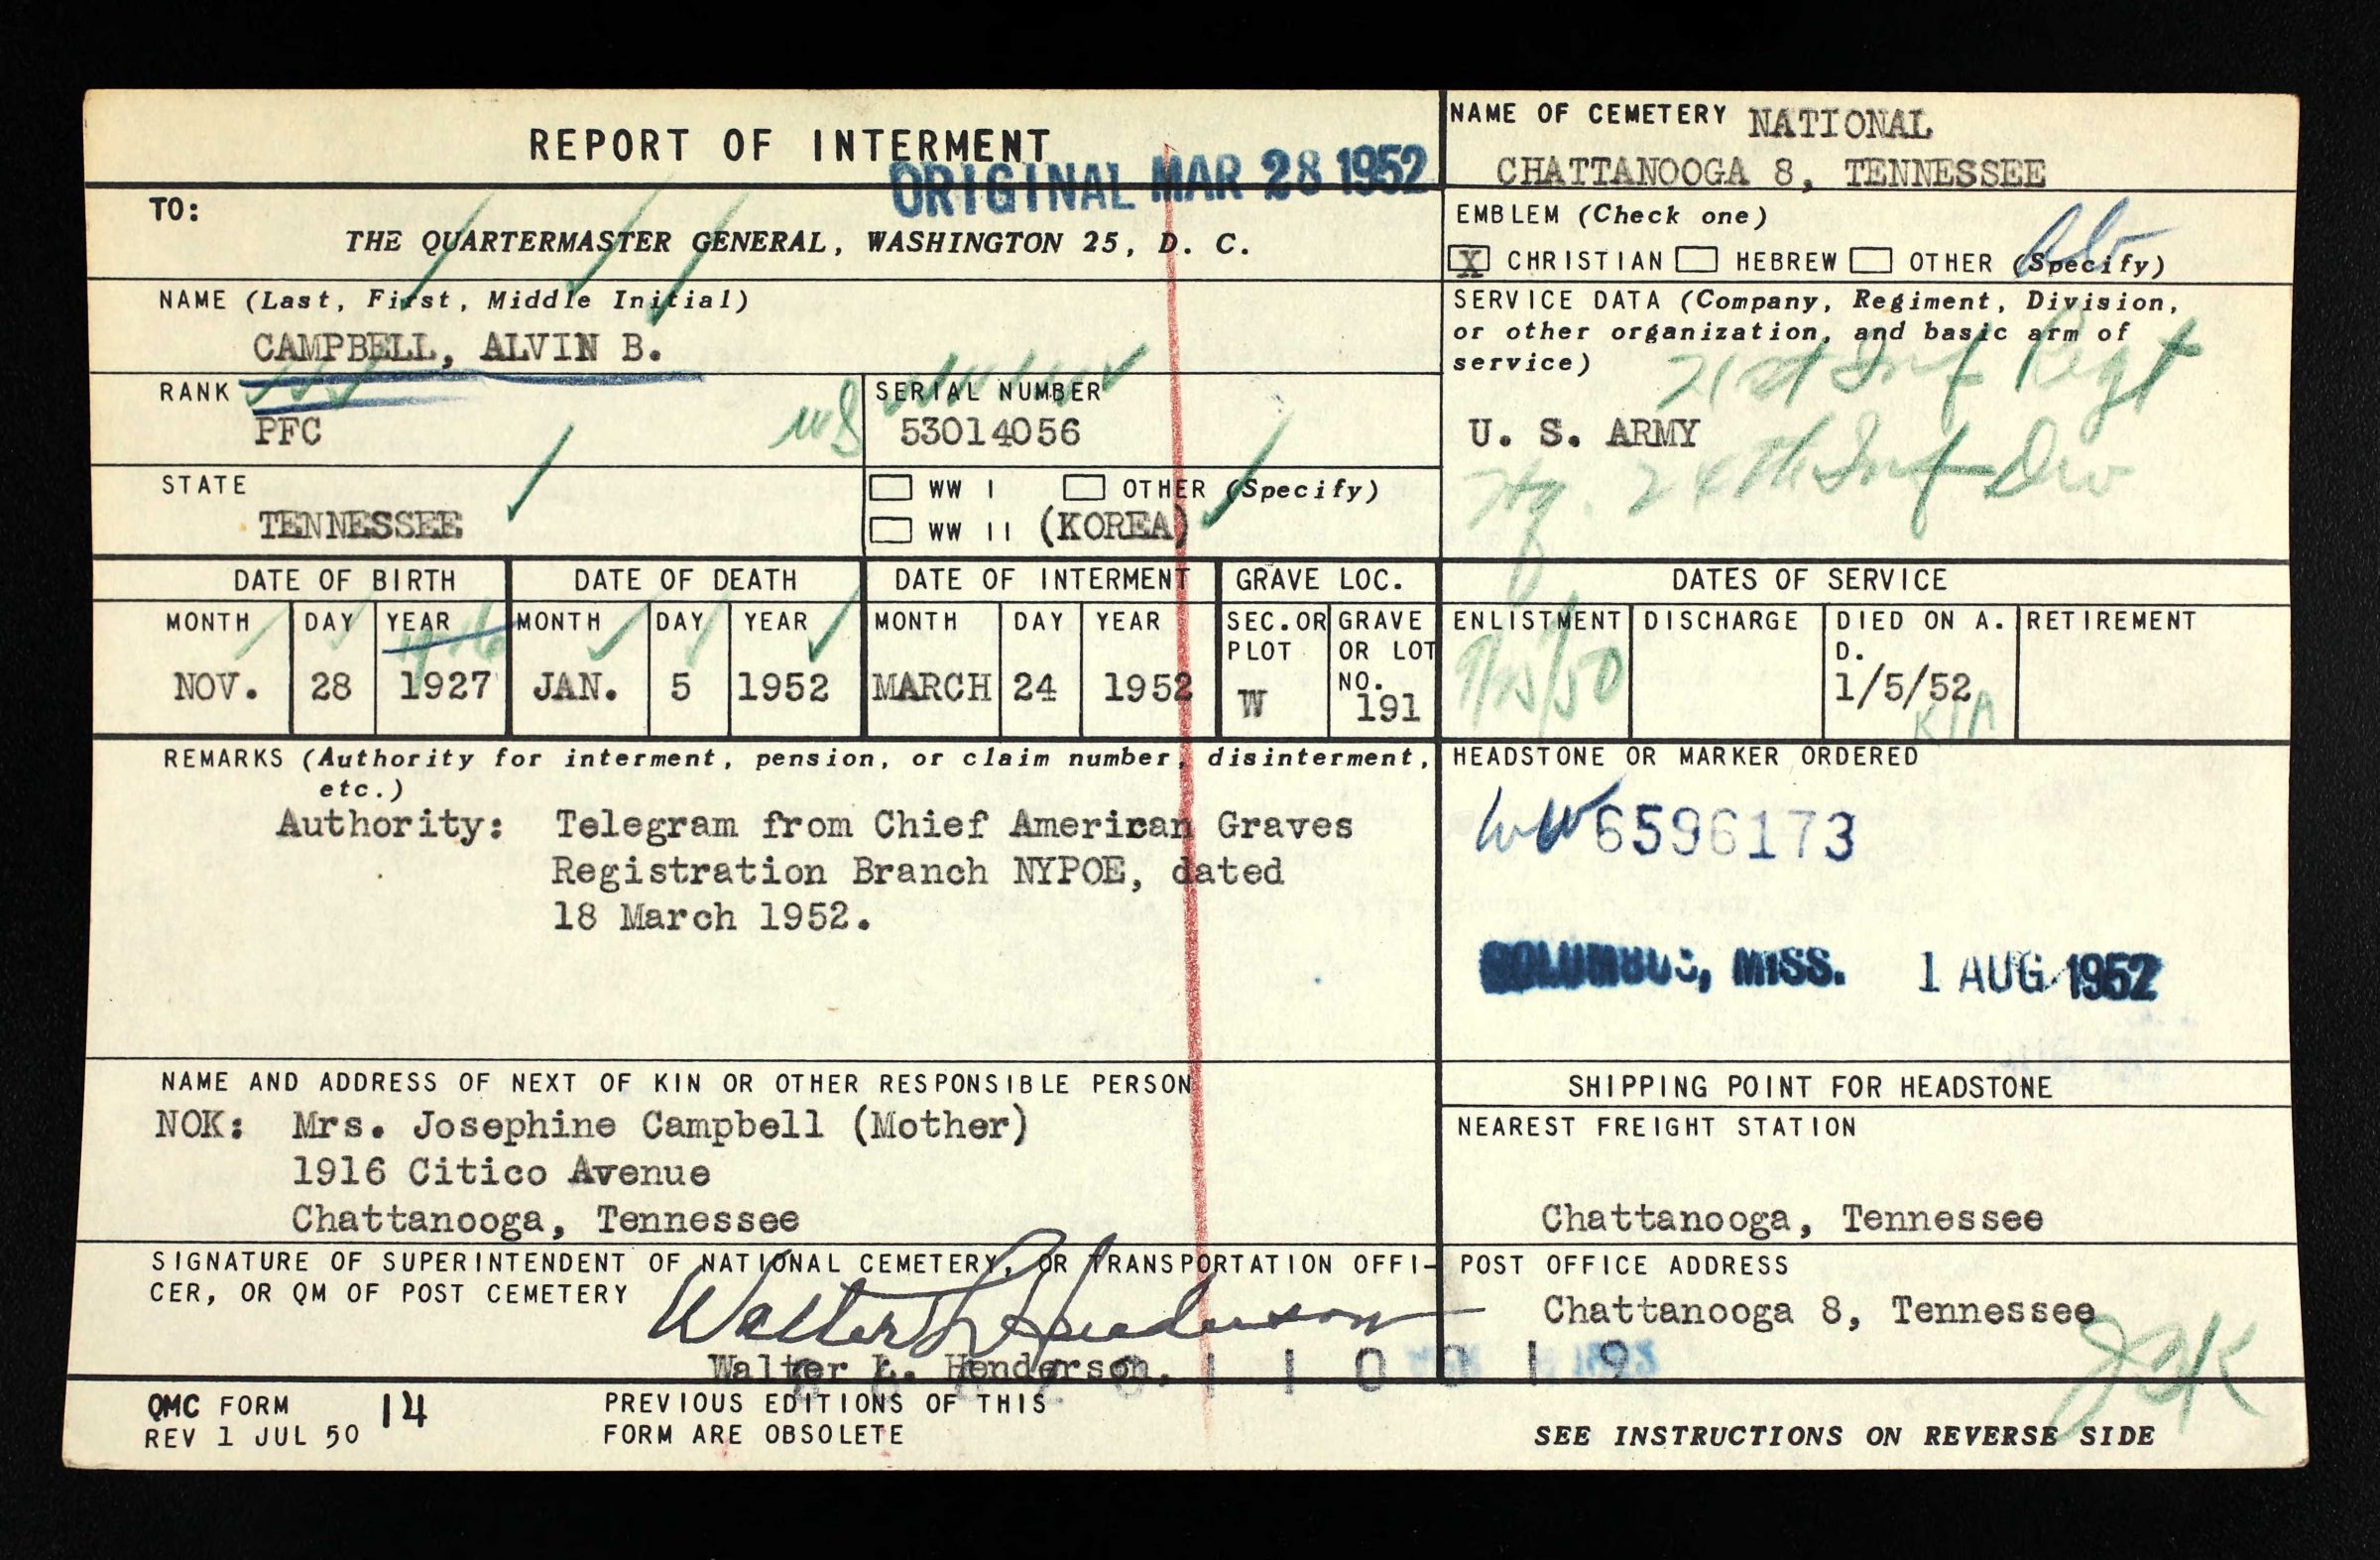 REPORT OF INTERMENT
ORIGINAL MAR 28 1952
NAME OF CEMETERY NATIONAL
CHATTANOOGA 8, TENNESSEE
TO:
THE QUARTERMASTER GENERAL, WASHINGTON 25, D. C.
EMBLEM (Check one)
X CHRISTIAN HEBREW OTHER (Specify)
NAME (Last, First, Middle Initial)
CAMPBELL, ALVIN B.
SERVICE DATA (Company, Regiment, Division,
or other organization, and basic arm of
service)
21st Inf Regt
U. S. ARMY
Hq. 24th Inf Div
RANK
PFC
SERIAL NUMBER
53014056
STATE
TENNESSEE
WW I OTHER (Specify)
WW II (KOREA)
DATE OF BIRTH DATE OF DEATH DATE OF INTERMENT GRAVE LOC. DATES OF SERVICE
MONTH DAY YEAR MONTH DAY YEAR MONTH DAY YEAR SEC. OR PLOT GRAVE OR LOT NO. ENLISTMENT DISCHARGE DIED ON A. D. RETIREMENT
NOV. 28 1927 JAN. 5 1952 MARCH 24 1952 W 191 9/25/50 1/5/52
KIA
REMARKS (Authority for interment, pension, or claim number, disinterment,
etc.)
Authority: Telegram from Chief American Graves
Registration Branch NYPOE, dated
18 March 1952.
HEADSTONE OR MARKER ORDERED
6596173
COLUMBUS, MISS. 1 AUG 1952
NAME AND ADDRESS OF NEXT OF KIN OR OTHER RESPONSIBLE PERSON
NOK: Mrs. Josephine Campbell (Mother)
1916 Citico Avenue
Chattanooga, Tennessee
SHIPPING POINT FOR HEADSTONE
NEAREST FREIGHT STATION
Chattanooga, Tennessee
SIGNATURE OF SUPERINTENDENT OF NATIONAL CEMETERY, OR TRANSPORTATION OFFI-
CER, OR QM OF POST CEMETERY
Walter L Henderson
Walter L. Henderson.
POST OFFICE ADDRESS
Chattanooga 8, Tennessee
QMC FORM 14
REV 1 JUL 50
PREVIOUS EDITIONS OF THIS
FORM ARE OBSOLETE
SEE INSTRUCTIONS ON REVERSE SIDE